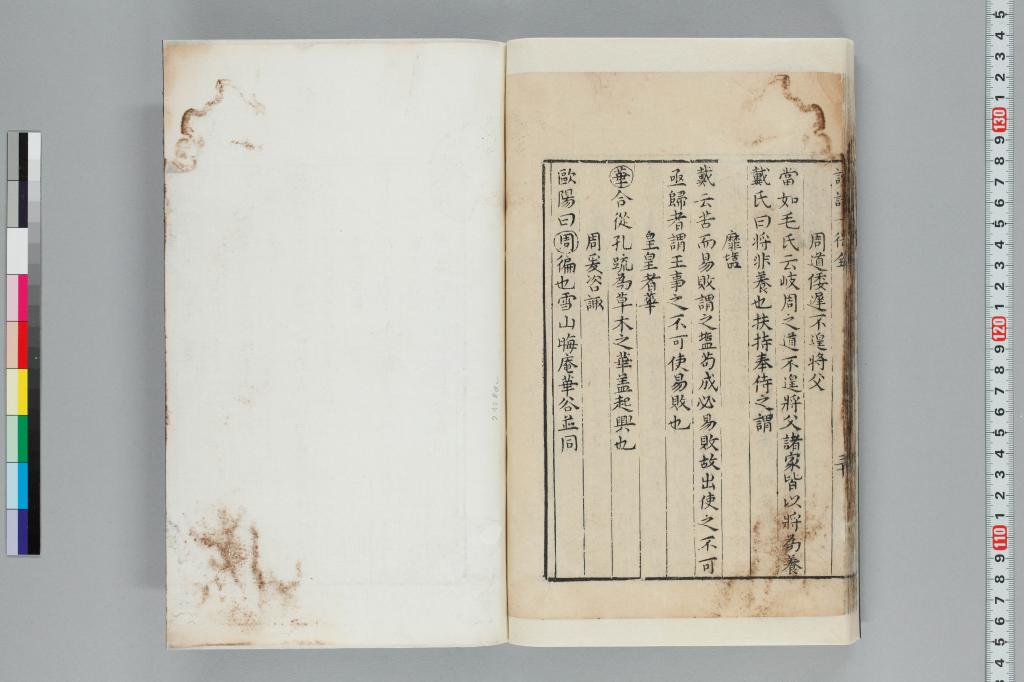 周道倭遲不遑將父
當如毛氏云岐周之道不遑將父諸家皆以將爲養
戴氏曰將非養也扶持奉侍之謂
靡盬
戴云苦而易敗謂之盬苟成必易敗故出使之不可
亟歸者謂王事之不可使易敗也
皇皇者華
華合從孔疏爲草木之華蓋起興也
周爰咨諏
歐陽曰周徧也雪山晦庵華谷並同